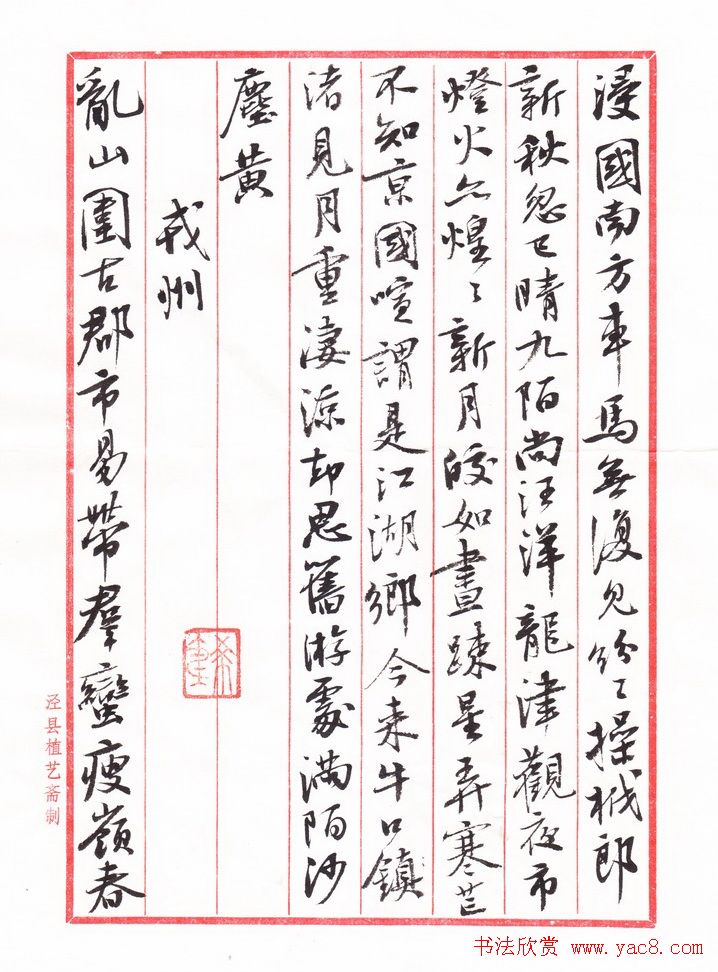 浸國南方車馬無復見紛〻操栰郎
新秋忽已晴九陌尚汪洋龍津觀夜市
燈火亦煌〻新月皎如晝疎星弄寒芒
不知京國喧謂是江湖鄉今来牛口鎮
渚見月重凄涼却思舊游處滿陌沙
塵黄
戎州
亂山圍古郡市易帶群蠻瘦嶺春
泾县植艺斋制
书法欣赏 www.yac8.com